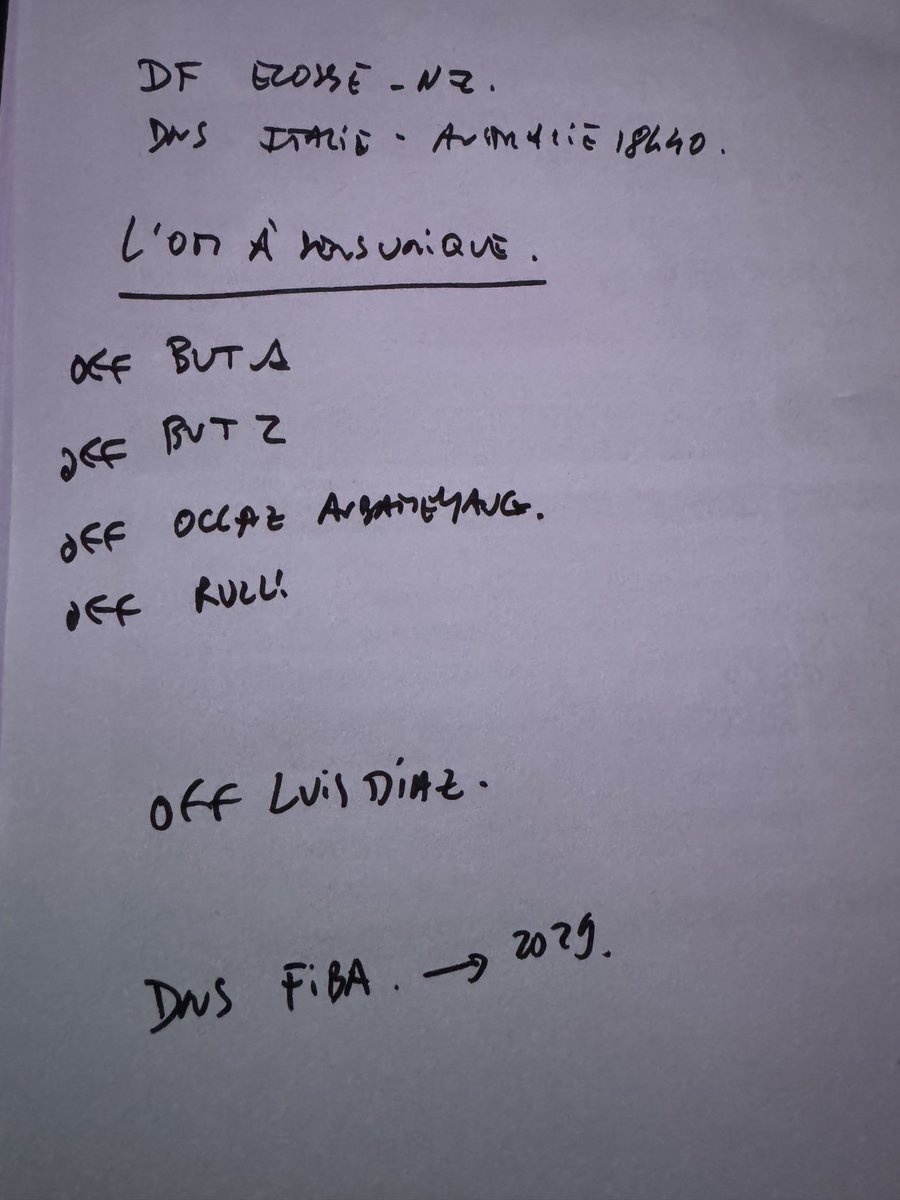 DF ECOSSE - NZ.
DNS ITALIE - AUSTRALIE 18h40.
L'OM À SENS UNIQUE.
OFF BUT 1
OFF BUT 2
OFF OCCAZ AUBAMEYANG.
OFF RULLI
OFF LUIS DÍAZ.
DNS FIBA. → 2029.